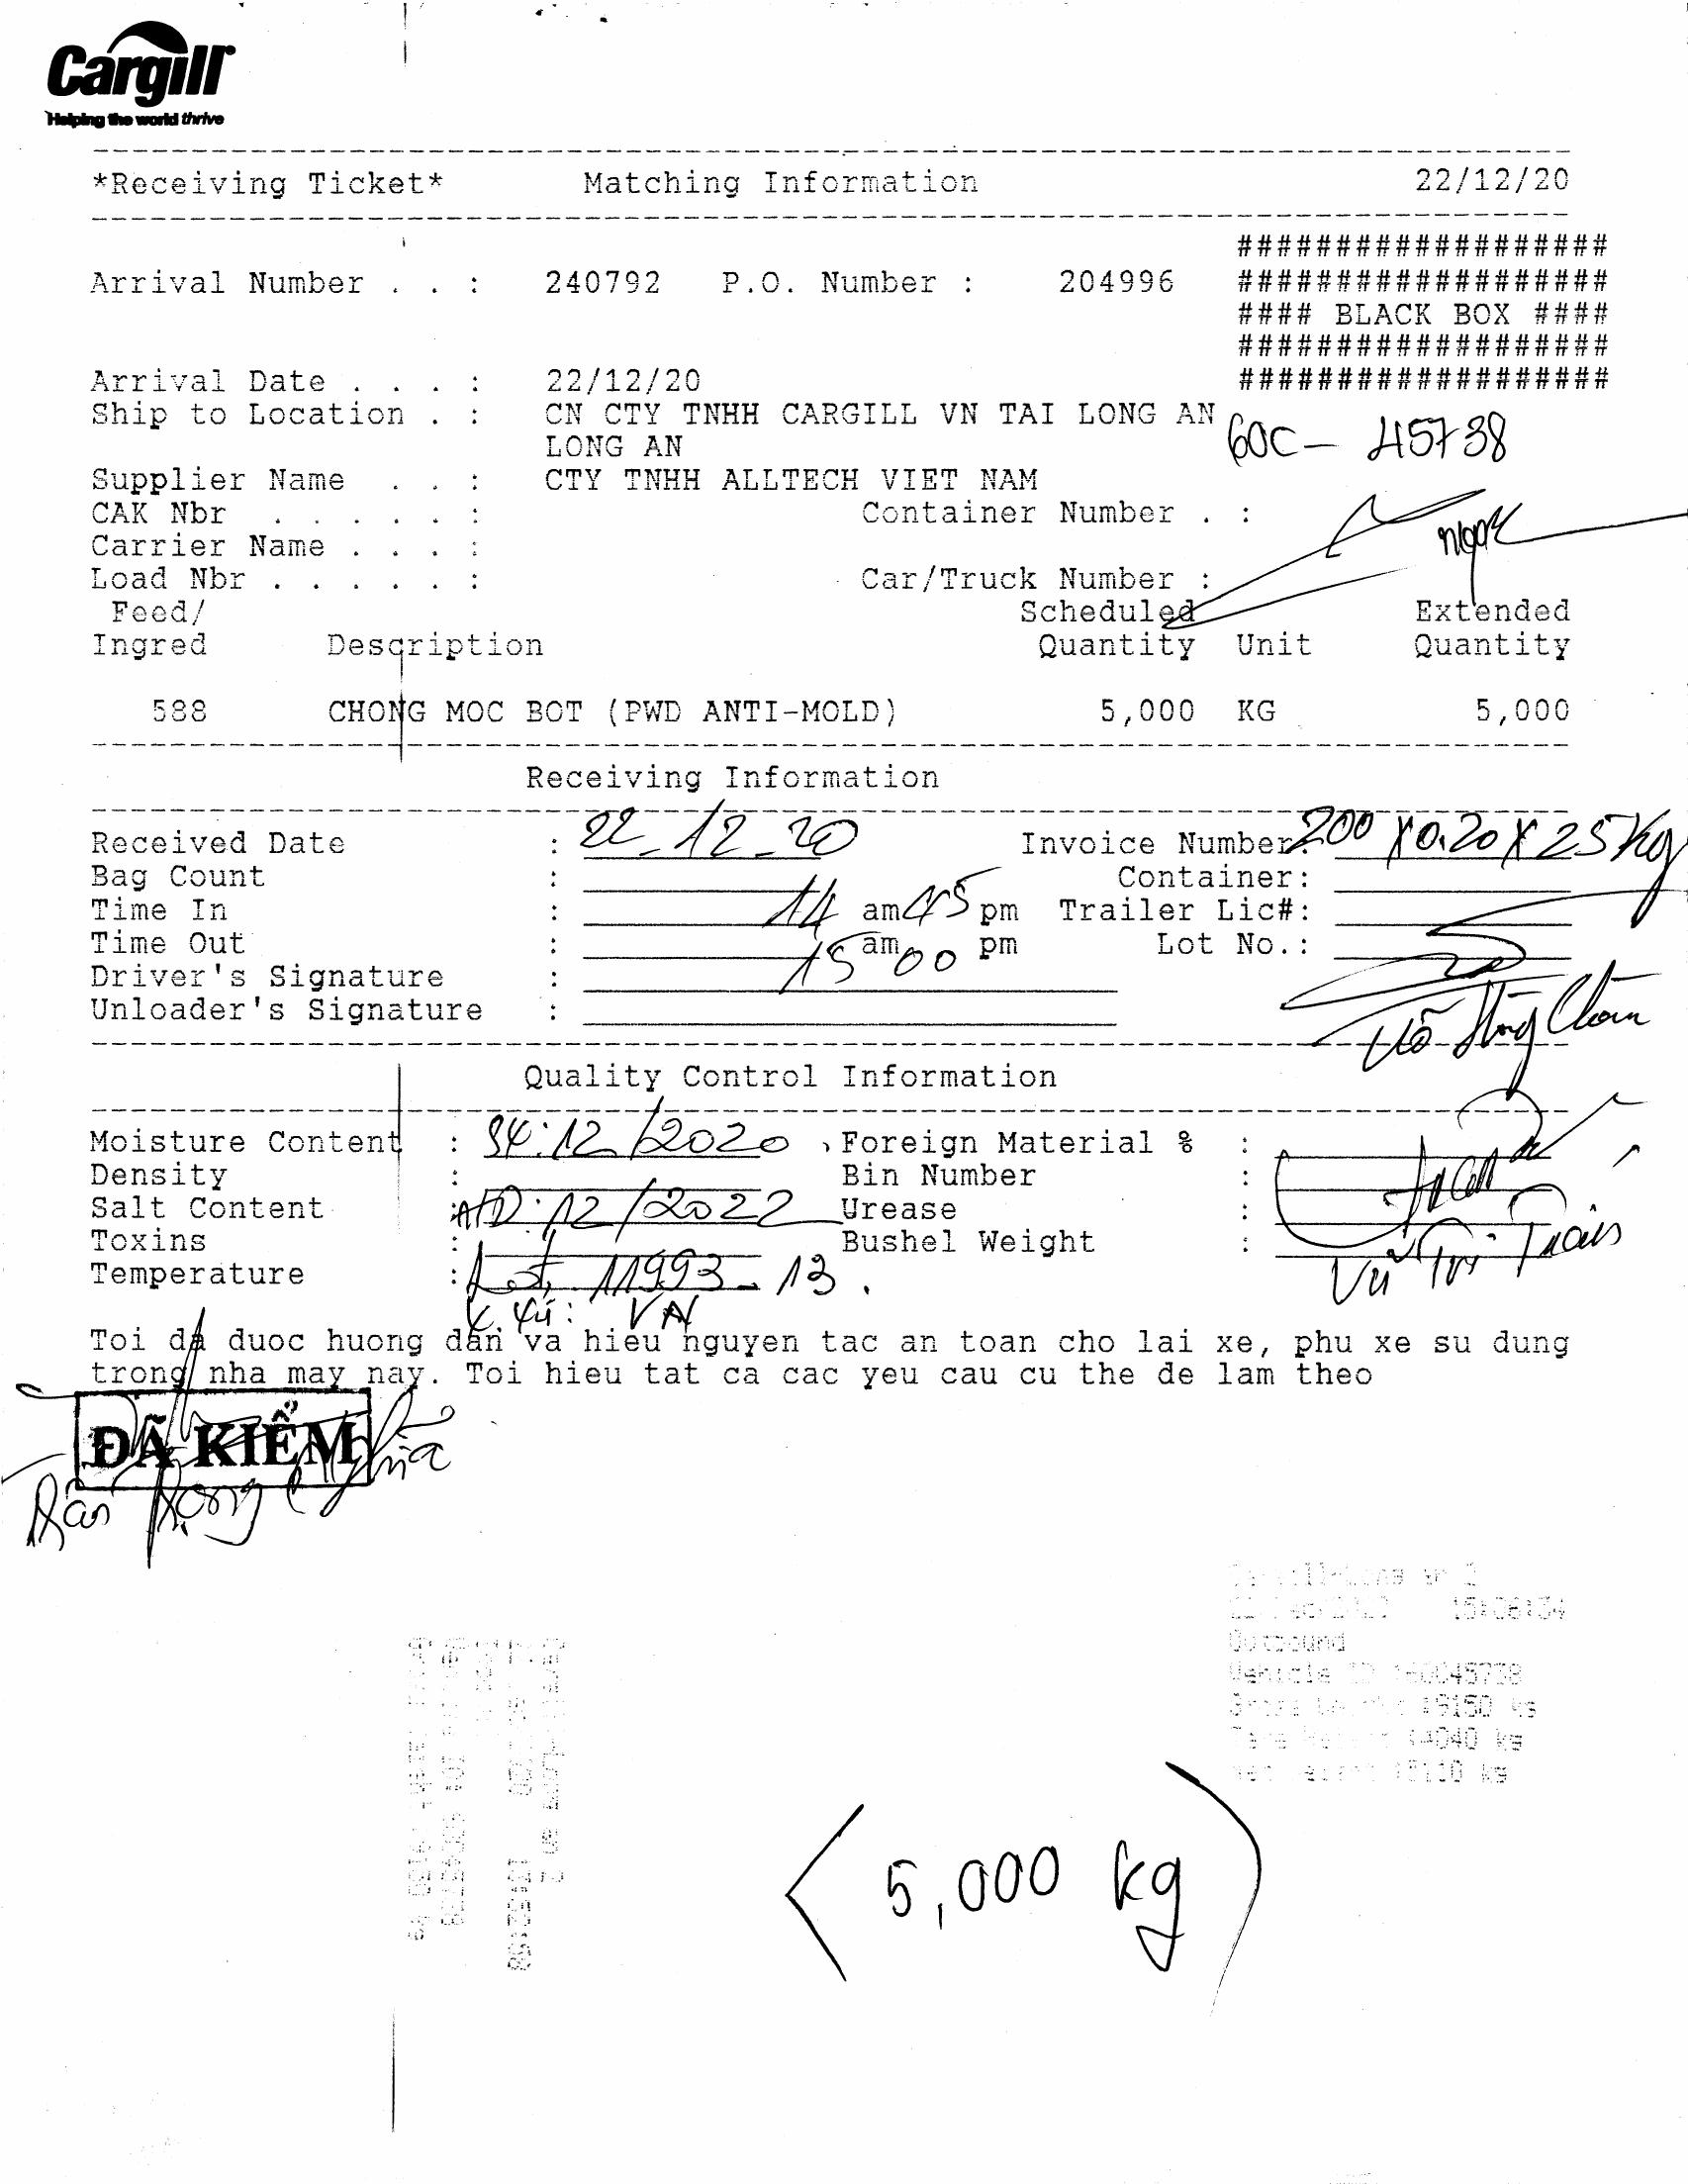 Cargill
Helping the world thrive
*Receiving Ticket* Matching Information 22/12/20
###################
Arrival Number . . : 240792 P.O. Number : 204996 ###################
#### BLACK BOX ####
###################
Arrival Date . . . : 22/12/20 ###################
Ship to Location . : CN CTY TNHH CARGILL VN TAI LONG AN
LONG AN 60C- 45738
Supplier Name . . : CTY TNHH ALLTECH VIET NAM
CAK Nbr . . . . . : Container Number . :
Carrier Name . . . :
Load Nbr . . . . . : Car/Truck Number :
Feed/ Scheduled Extended
Ingred Description Quantity Unit Quantity
588 CHONG MOC BOT (PWD ANTI-MOLD) 5,000 KG 5,000
Receiving Information
Received Date : 22_12_20 Invoice Number: 200 X 0.20 X 25Kg
Bag Count : Container:
Time In : 14 am 45 pm Trailer Lic#:
Time Out : 15 am 00 pm Lot No.:
Driver's Signature :
Unloader's Signature :
Quality Control Information
Moisture Content : SX:12/2020 Foreign Material % :
Density : Bin Number :
Salt Content : HD:12/2022 Urease :
Toxins : Bushel Weight :
Temperature : Lot 11993-13.
X. Xứ: VN
Vũ Trí
Toi da duoc huong dan va hieu nguyen tac an toan cho lai xe, phu xe su dung
trong nha may nay. Toi hieu tat ca cac yeu cau cu the de lam theo
ĐÃ KIỂM
Outbound
5,000 kg